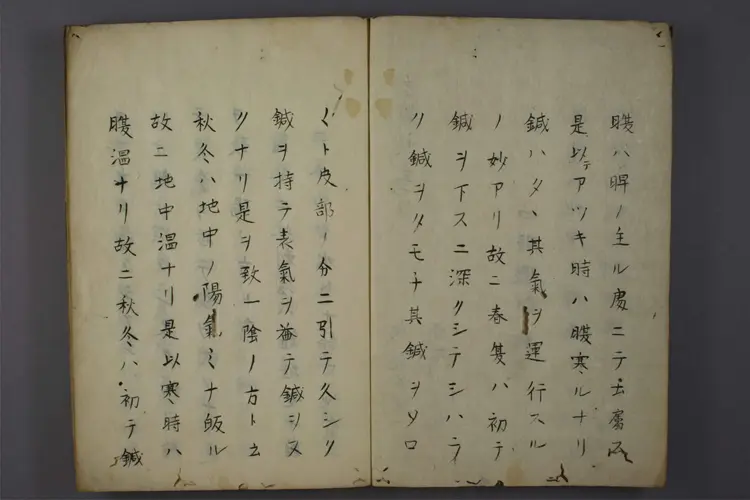 腹ハ脾ノ主ル處ニテ土ニ属ス
是以テアツキ時ハ腹寒ルナリ
鍼ハタヽ其氣ヲ運行スル
ノ妙アリ故ニ春夏ハ初テ
鍼ヲ下スニ深クシテシハラ
リ鍼ヲタモチ其鍼ヲソロ
〱ト皮部ノ分ニ引テ久シク
鍼ヲ持テ表氣ヲ益テ鍼ヲヌ
クナリ是ヲ致一陰ノ方ト云
秋冬ハ地中ノ陽氣ミナ皈ル
故ニ地中温ナリ是以寒時ハ
腹温ナリ故ニ秋冬ハ初テ鍼